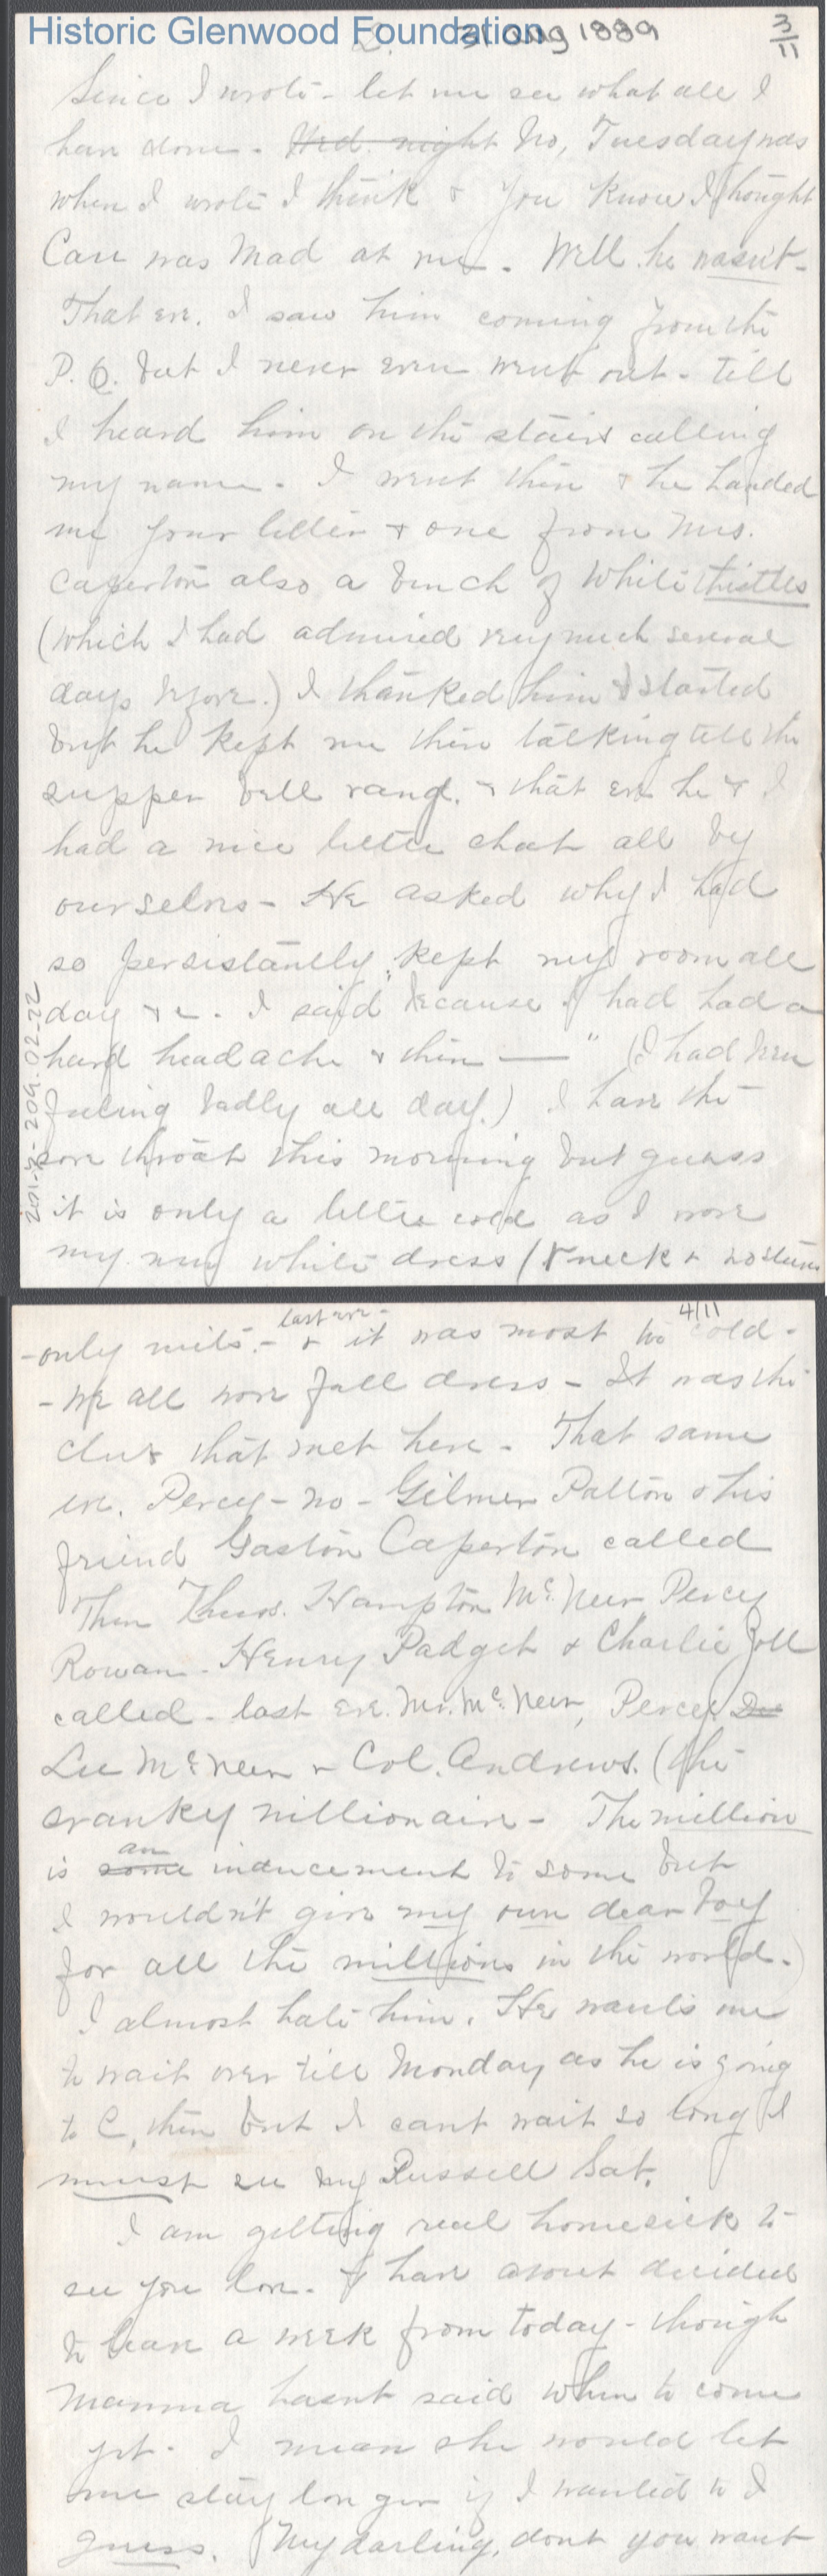 Historic Glenwood Foundation
2. 31 Aug 1889 3/11
Since I wrote - let me see what all I
have done. Wed. night No, Tuesday was
when I wrote I think & you know I thought
Care was Mad at me. Well he wasn't -
That eve. I saw him coming from the
P.O. but I never even went out - till
I heard him on the stairs calling
my name. I went then & he handed
me your letter & one from Mrs.
Caperton also a bunch of White thistles
(which I had admired very much several
days before.) I thanked him & started
but he kept me there talking till the
supper bell rang. & that eve he & I
had a nice little chat all by
ourselves - He asked why I had
so persistantly kept my room all
day &c. I said "because I had had a
hard headache & then —" (I had been
feeling badly all day.) I have the
sore throat this morning but guess
it is only a little cold as I wore
my new white dress (V neck &
201-4-209.02-22
- only mits. - last eve - & it was most too cold -
4/11
- We all wore full dress - It was the
club that met here. That same
eve. Percy - no - Gilmer Patton & his
friend Gaston Caperton called
Then Thurs. Hampton McNeer Percy
Rowan - Henry Padget & Charlie Zoll
called - last eve. Mr. McNeer, Percy
Lee McNeer & Col. Andrews. (the
cranky millionaire - The million
is some an inducement to some but
I wouldn't give my own dear boy
for all the millions in the world.)
I almost hate him. He wants me
to wait over till Monday as he is going
to C, then but I cant wait so long I
must see my Russell Sat.
I am getting real homesick to
see you love. I have about decided
to leave a week from today - though
Mamma hasnt said when to come
yet. I mean she would let
me stay longer if I wanted to I
guess. My darling, dont you want